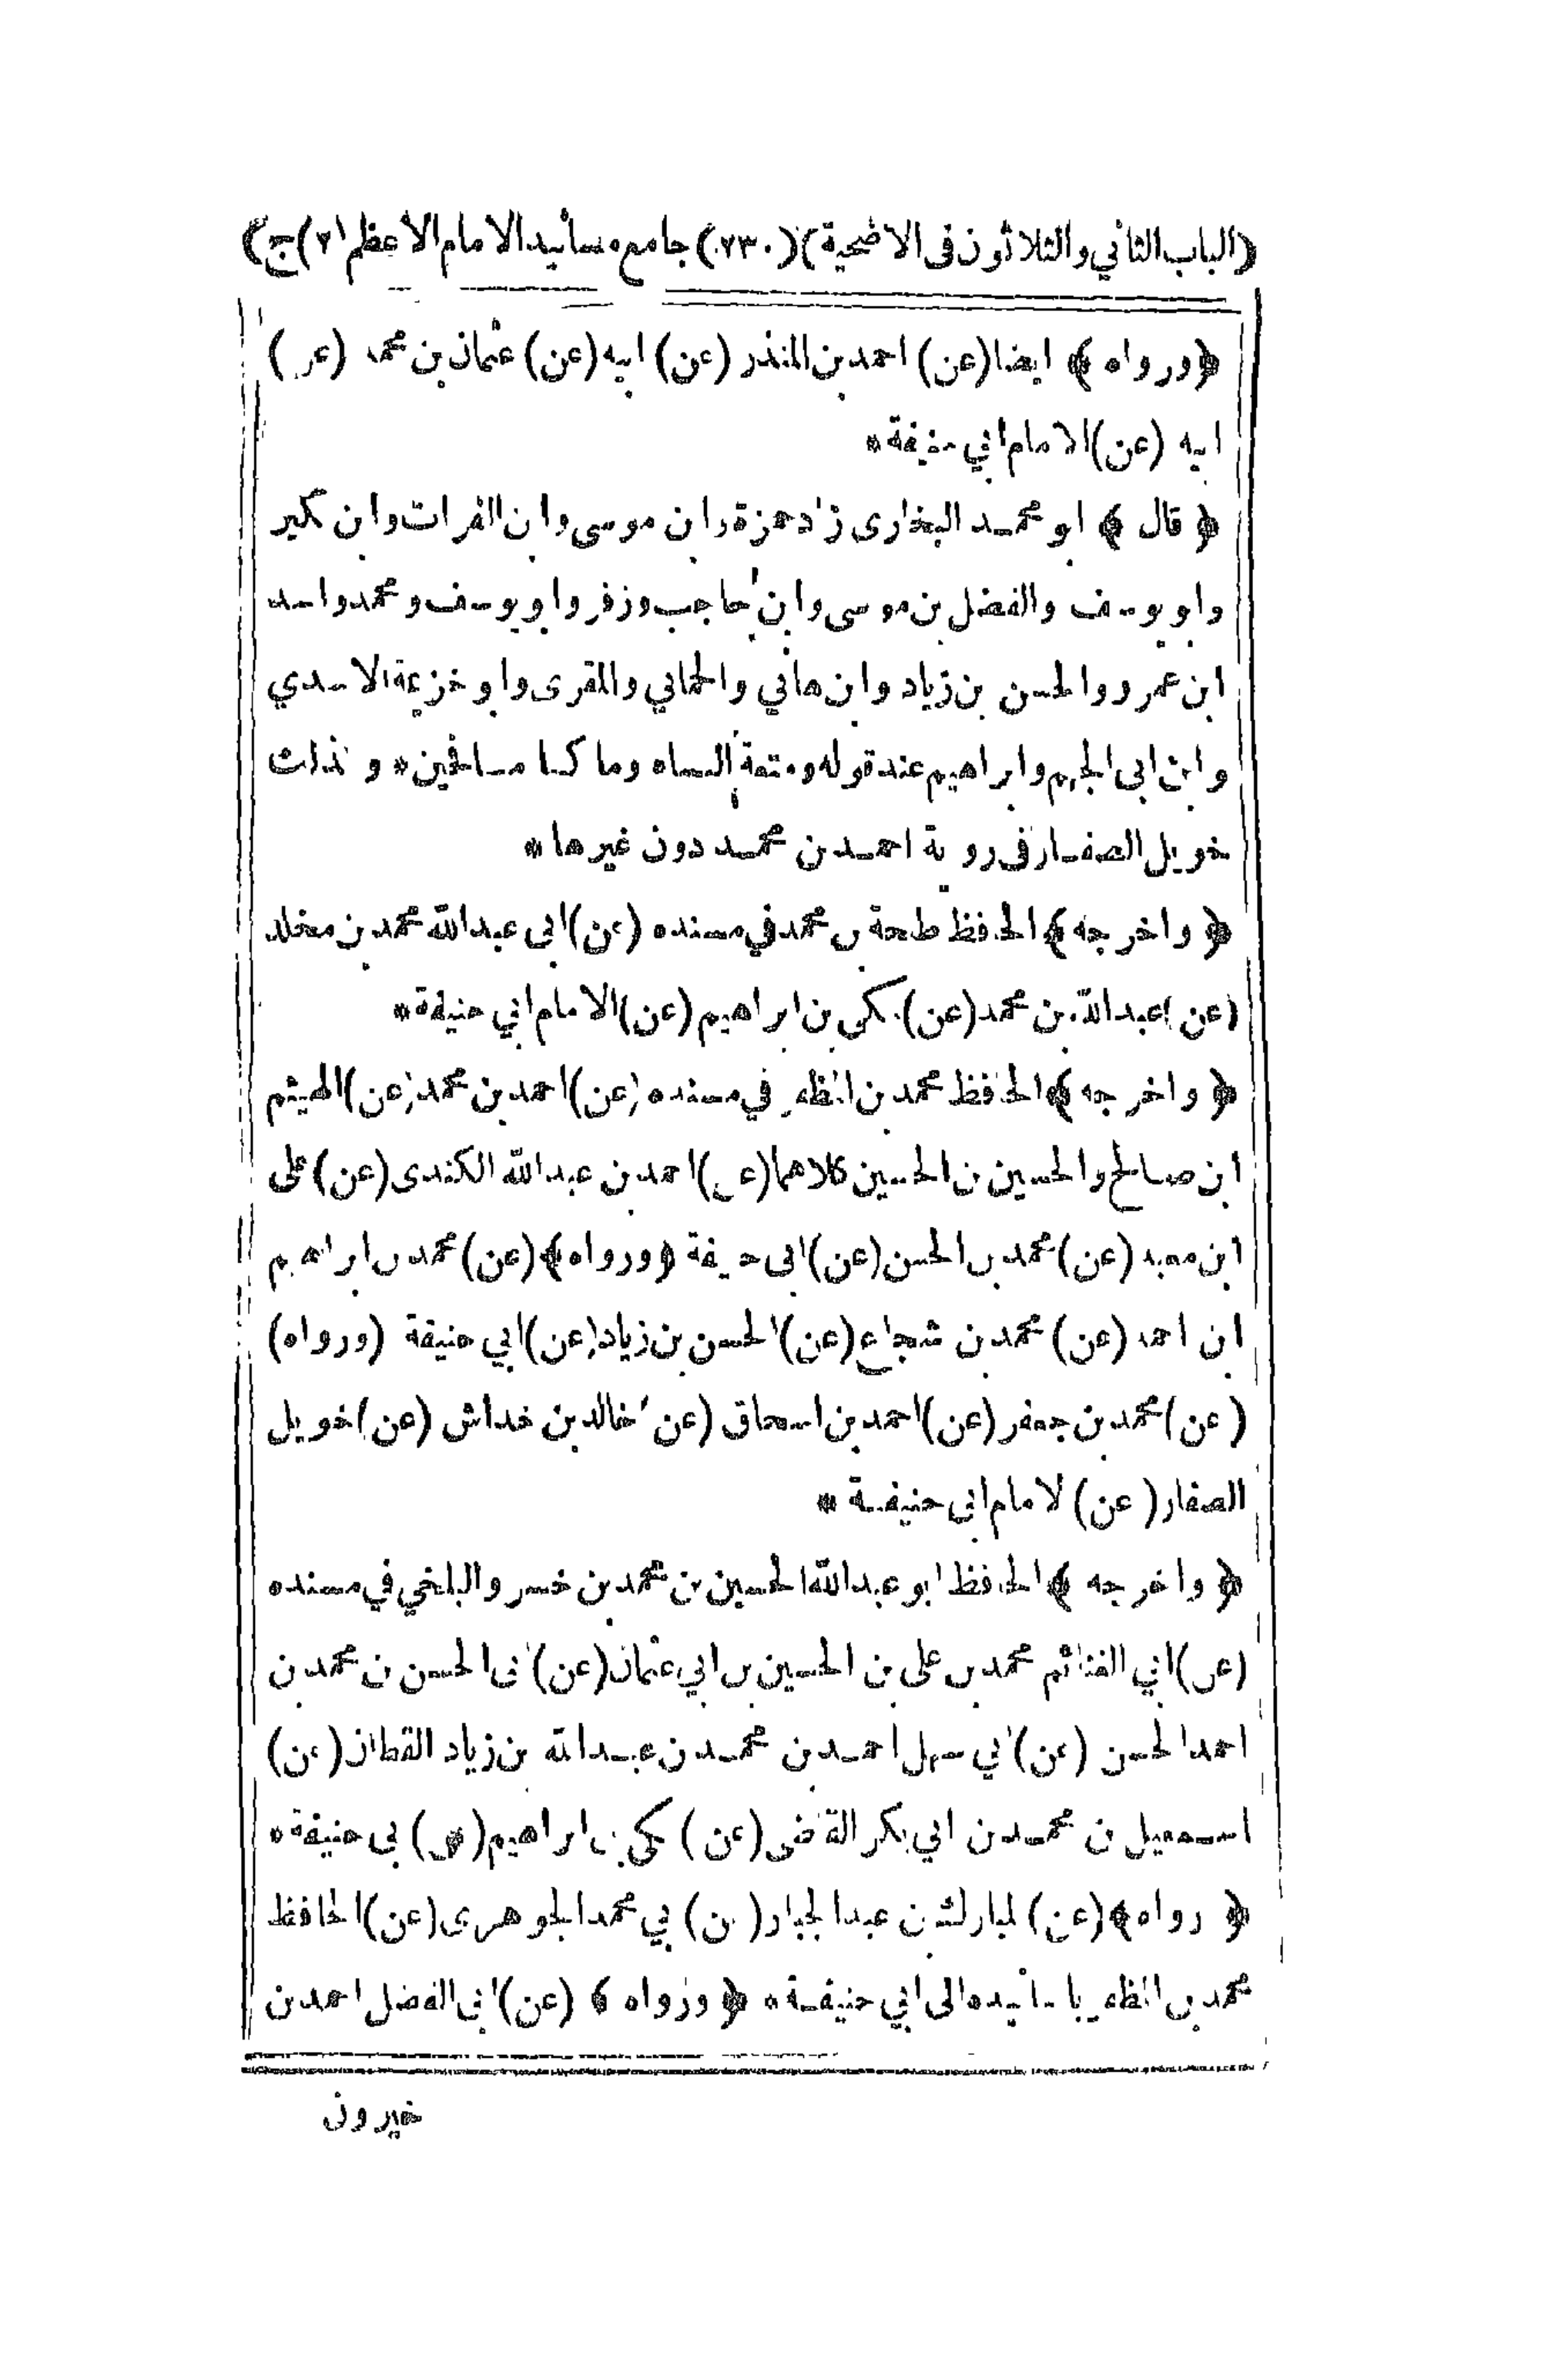 (الباب الثاني والثلاثون في الاضحية) (٢٣٠) جامع مسانيد الامام الاعظم (٢) ج)
﴿ورواه﴾ ايضا (عن) احمد بن المنذر (عن) ابيه (عن) عثمان بن محمد (عن)
ابيه (عن) الامام ابي حنيفة *
﴿قال﴾ ابو محمد البخاري زاد حمزة وابن موسى وابن الفرات وابن بكير
وابو يوسف والفضل بن موسى وابن حاجب وزفر وابو يوسف ومحمد واسد
ابن عمرو والحسن بن زياد وابن هاني والحماني والمقرى وابو خزيمة الاسدي
وابن ابي الجهم وابراهيم عند قوله ومتعة النساء وما كنا مسافحين * وكذلك
خويل الصفار في رواية احمد بن محمد دون غيرها *
﴿واخرجه﴾ الحافظ طلحة بن محمد في مسنده (عن) ابي عبد الله محمد بن مخلد
(عن) عبد الله بن محمد (عن) مكي بن ابراهيم (عن) الامام ابي حنيفة *
﴿واخرجه﴾ الحافظ محمد بن المظفر في مسنده (عن) احمد بن محمد (عن) الهيثم
ابن صالح والحسين بن الحسين كلاهما (عن) احمد بن عبد الله الكندى (عن) على
ابن معبد (عن) محمد بن الحسن (عن) ابي حنيفة ﴿ورواه﴾ (عن) محمد بن ابراهيم
ابن احمد (عن) محمد بن شجاع (عن) الحسن بن زياد (عن) ابي حنيفة (ورواه)
(عن) محمد بن جعفر (عن) احمد بن اسحاق (عن) خالد بن خداش (عن) خويل
الصفار (عن) الامام ابي حنيفة *
﴿واخرجه﴾ الحافظ ابو عبد الله الحسين بن محمد بن خسرو البلخي في مسنده
(عن) ابي الغنائم محمد بن على بن الحسين بن ابي عثمان (عن) ابي الحسن بن محمد بن
احمد الحسن (عن) ابي سهل احمد بن محمد بن عبد الله بن زياد القطان (عن)
اسمعيل بن محمد بن ابي بكر القاضى (عن) مكي بن ابراهيم (عن) ابي حنيفة *
﴿ورواه﴾ (عن) المبارك بن عبد الجبار (عن) ابي محمد الجوهرى (عن) الحافظ
محمد بن المظفر باسانيده الى ابي حنيفة * ﴿ورواه﴾ (عن) ابي الفضل احمد بن
خيرون